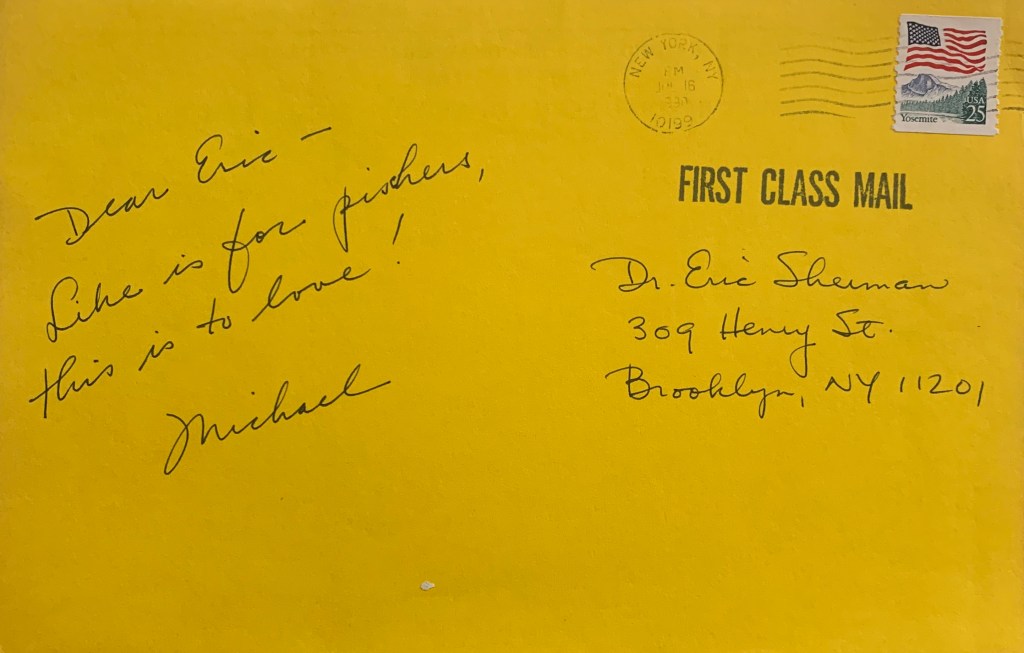 Dear Eric —
Like is for pishers,
this is to love!
Michael
NEW YORK, NY
PM
16
10199
USA
25
Yosemite
FIRST CLASS MAIL
Dr. Eric Sherman
309 Henry St.
Brooklyn, NY 11201